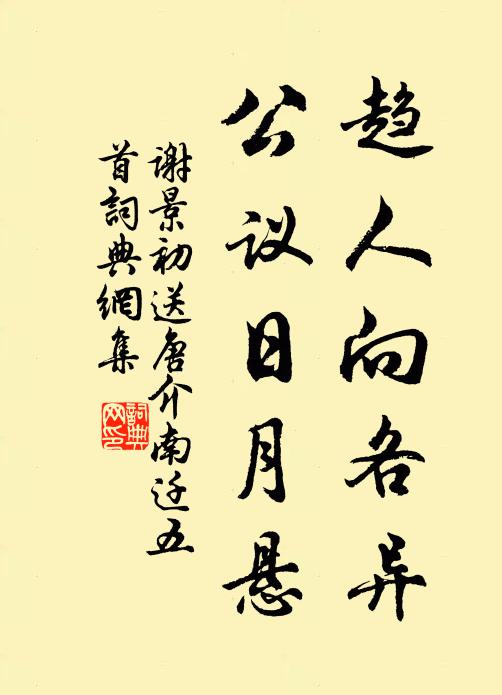 趋人向各异
公议日月悬
谢景初送唐介南迁五
首詞典網集
詞典
网印